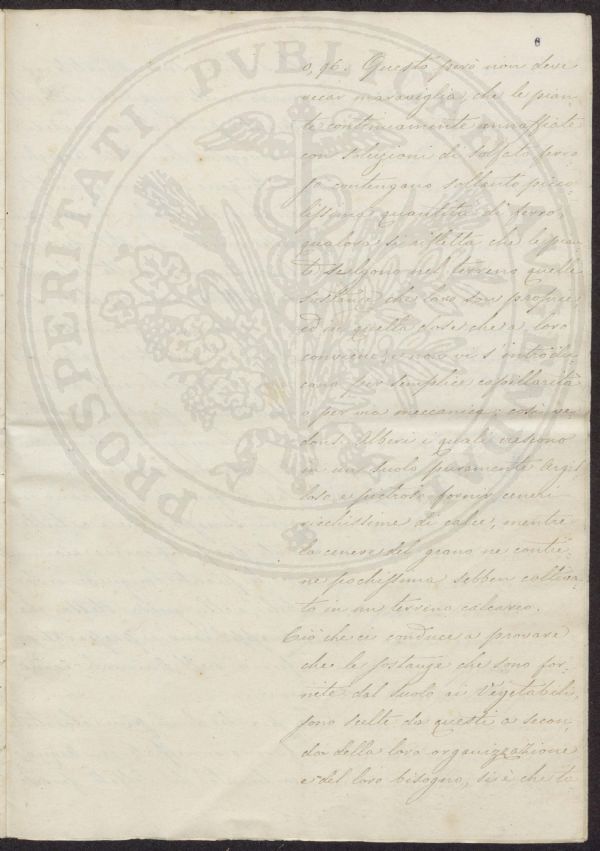 6
0,96. Questo però non deve
recar maraviglia, che le pian-
te continuamente annaffiate
con soluzioni di solfato ferro
so contengano soltanto picco-
lissima quantità di ferro,
qualora si rifletta che le pian-
te scelgono nel terreno quelle
sostanze che loro son proficue
ed in quella dose che a loro
conviene, e non vi s'introdu-
cono per semplice capillarità
o per via meccanica; così ve-
donsi Alberi i quali crescono
in un suolo puramente Argil-
loso e pietroso fornir ceneri
ricchissime di calce, mentre
la cenere del grano ne contie-
ne pochissima sebben coltiva-
to in un terreno calcareo.
Ciò che ci conduce a provare
che le sostanze che sono for-
nite dal suolo ai Vegetabili,
sono scelte da questi a secon-
da della loro organizzazione
e del loro bisogno, si è che to
PROSPERITATI PVBLICAE AVGENDAE